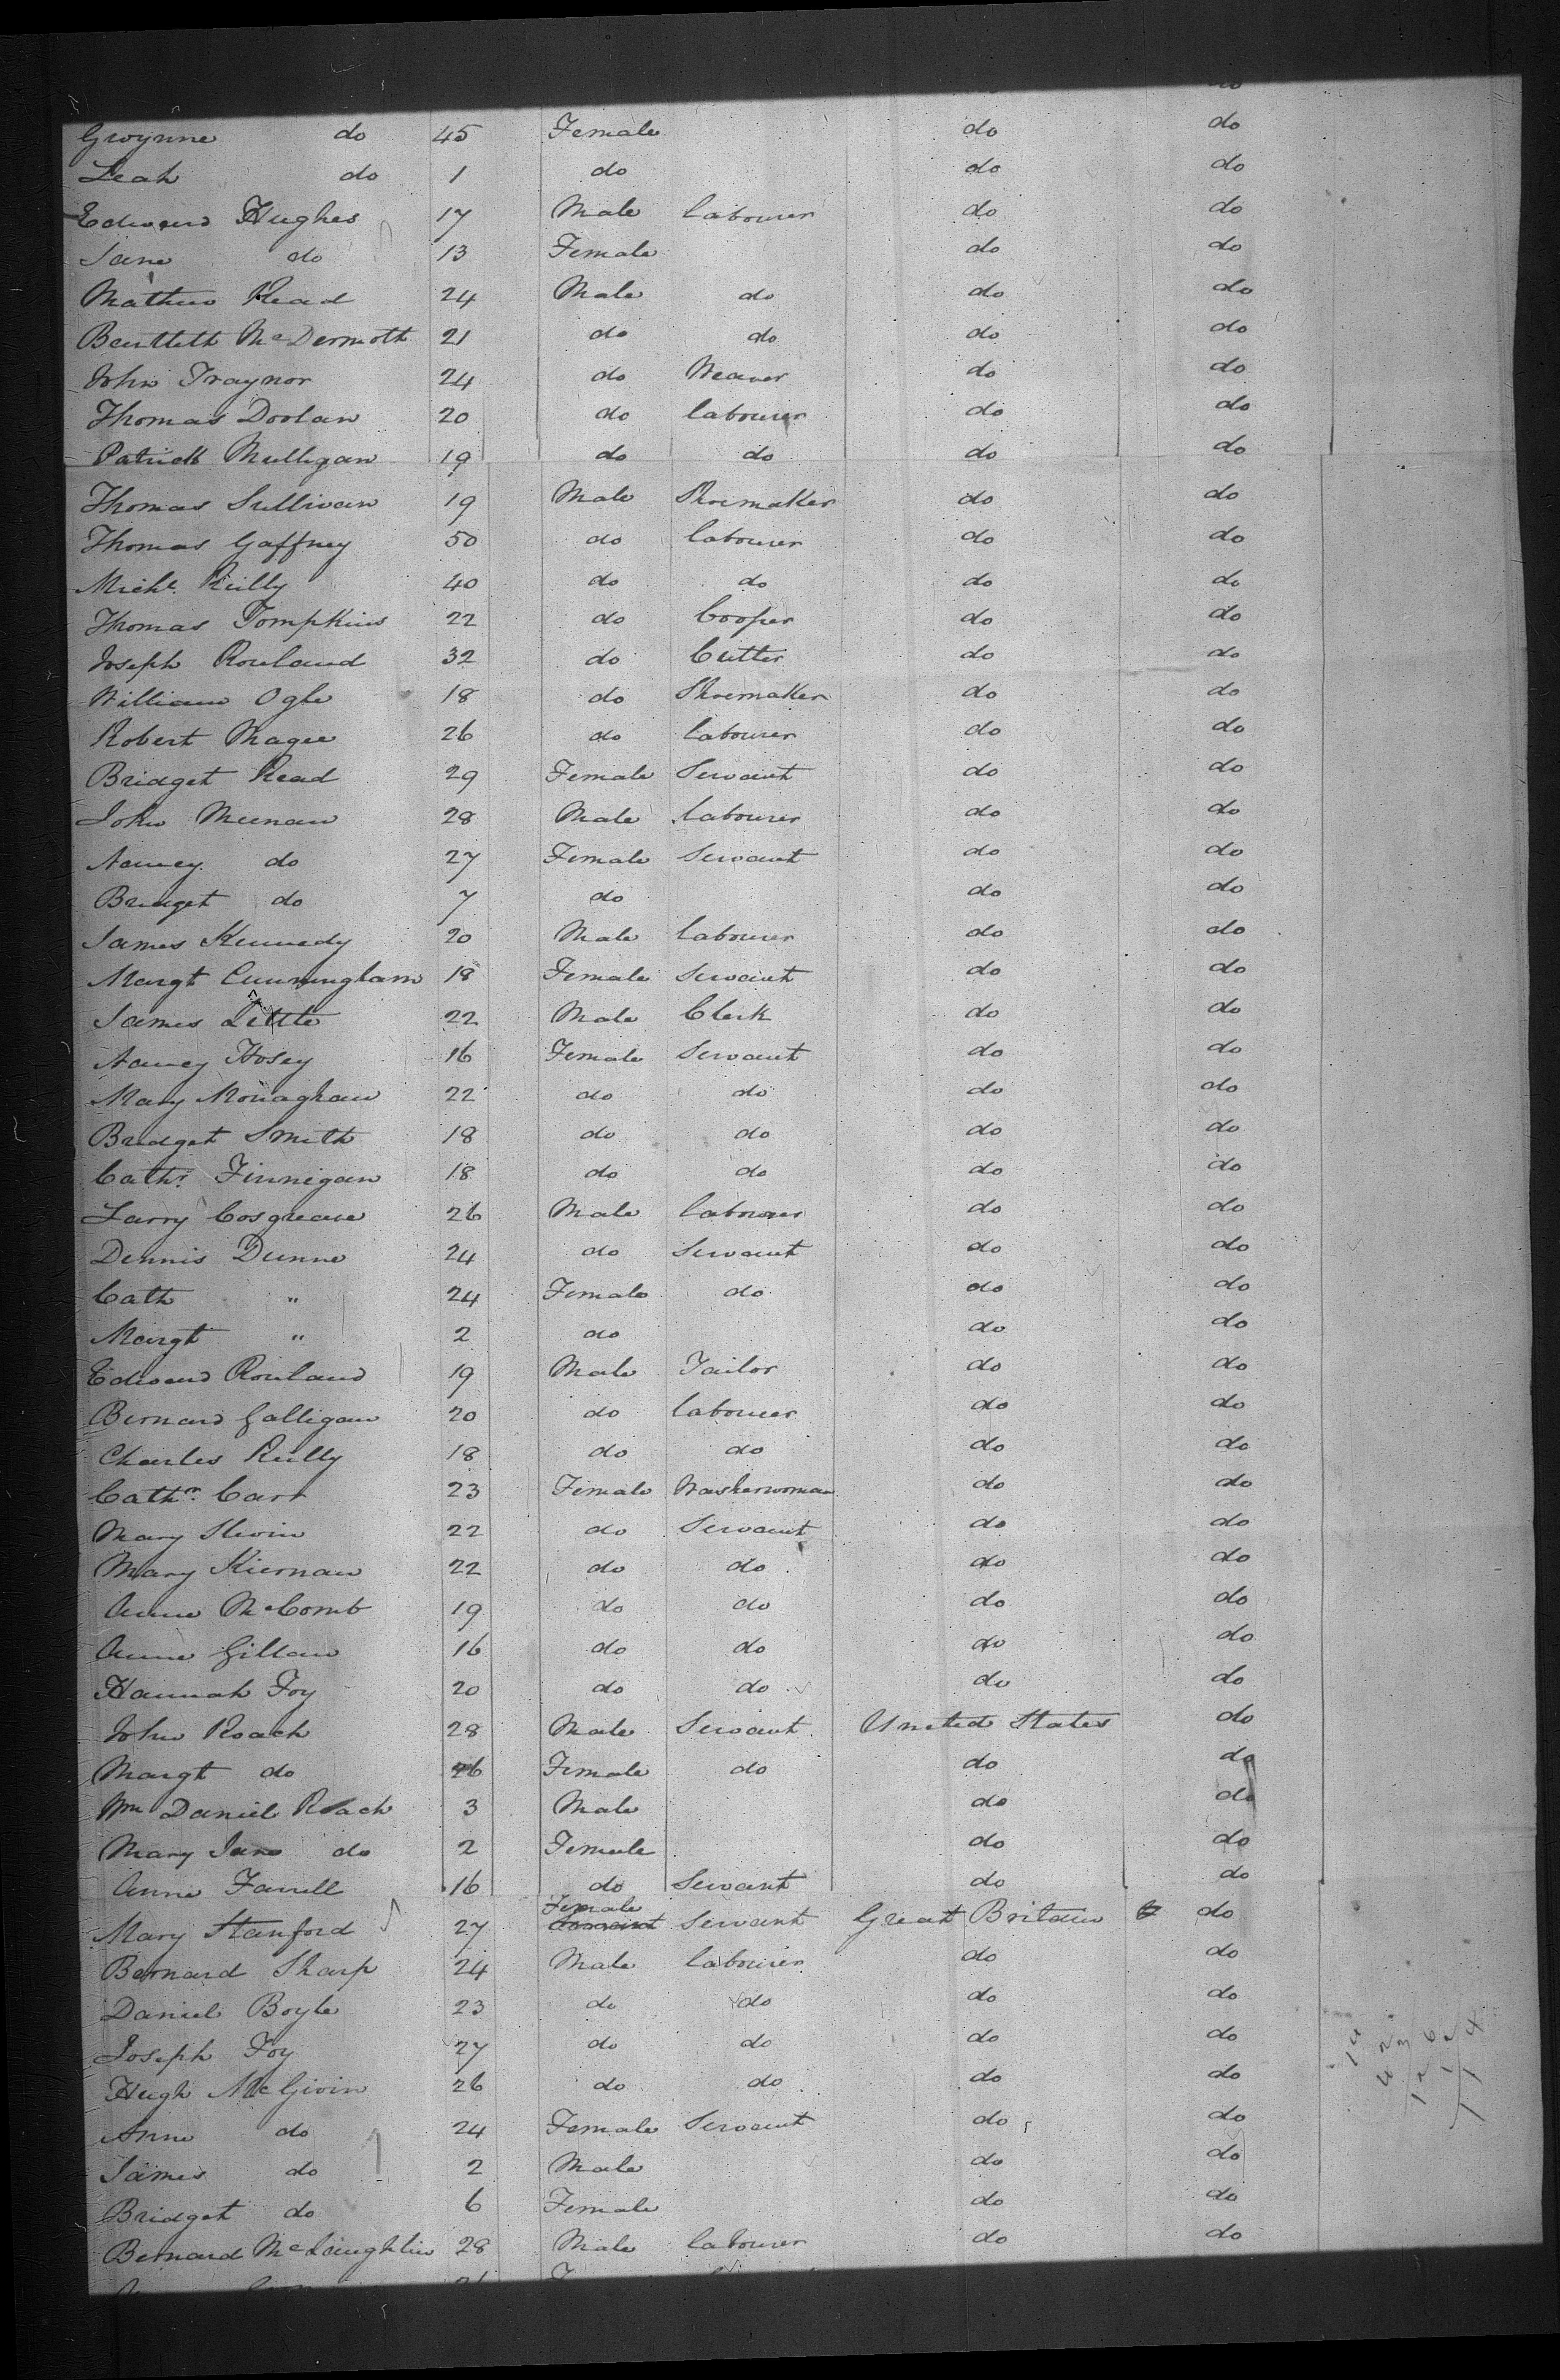 Gwynne do 45 Female do do
Leah do 1 do do do
Edward Hughes 17 Male labourer do do
Jane do 13 Female do do
Mathew Read 24 Male do do do
McDermott 21 do do do do
John Traynor 24 do Weaver do do
Thomas Doolan 20 do labourer do do
Patrick Mulligan 19 do do do do
Thomas Sullivan 19 Male Shoemaker do do
Thomas Gaffney 50 do labourer do do
Michl. Reilly 40 do do do do
Thomas Tompkins 22 do Cooper do do
Joseph Rouland 32 do Cutter do do
William Ogle 18 do Shoemaker do do
Robert Magee 26 do labourer do do
Bridget Read 29 Female Servant do do
John Meenan 28 Male labourer do do
Nancy do 27 Female Servant do do
Bridget do 7 do do do
James Kennedy 20 Male labourer do do
Margt Cunningham 18 Female Servant do do
James Little 22 Male Clerk do do
Nancy Hosey 16 Female Servant do do
Mary Monaghan 22 do do do do
Bridget Smith 18 do do do do
Cathr. Finnigan 18 do do do do
Larry Cosgreave 26 Male labourer do do
Dennis Dunne 24 do Servant do do
Cath " 24 Female do do do
Margt " 2 do do do
Edward Rouland 19 Male Tailor do do
Bernard Galligan 20 do labourer do do
Charles Reilly 18 do do do do
Cathn. Carr 23 Female Washerwoman do do
Mary Slevin 22 do Servant do do
Mary Kiernan 22 do do do do
Anne McComb 19 do do do do
Anne Gillan 16 do do do do
Hannah Foy 20 do do do do
John Roach 28 Male Servant United States do
Margt do 26 Female do do do
Wm Daniel Roach 3 Male do do
Mary Jane do 2 Female do do
Anne Farrell 16 do Servant do do
Mary Stanford 27 Female Servant Great Britain do
Bernard Sharp 24 Male labourer do do
Daniel Boyle 23 do do do do
Joseph Foy 27 do do do do
Hugh McGivin 26 do do do do
Anne do 24 Female Servant do do
James do 2 Male do do
Bridget do 6 Female do do
Bernard McLaughlin 28 Male labourer do do